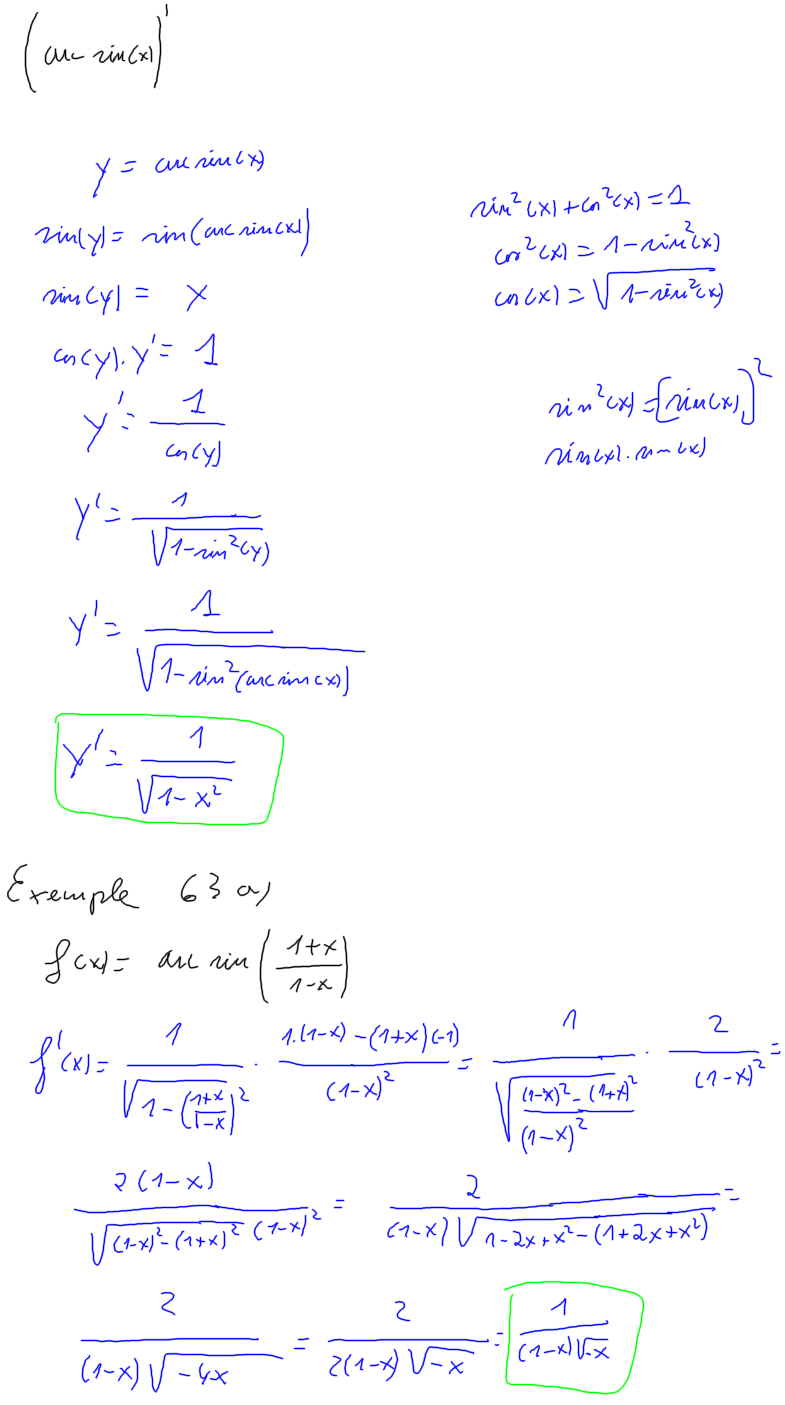 (arc sin(x))'
y = arc sin(x)
sin(y) = sin(arc sin(x))
sin(y) = x
cos(y). y' = 1
y' = 1/cos(y)
y' = 1/√(1-sin²(y))
y' = 1/√(1-sin²(arc sin(x)))
y' = 1/√(1-x²)
sin²(x)+cos²(x)=1
cos²(x) = 1-sin²(x)
cos(x) = √(1-sin²(x))
sin²(x) = [sin(x)]²
sin(x). sin(x)
Exemple 63 a)
f(x) = arc sin((1+x)/(1-x))
f'(x) = 1/√(1-((1+x)/(1-x))²) · (1.(1-x)-(1+x)(-1))/(1-x)² = 1/√(((1-x)²-(1+x)²)/(1-x)²) · 2/(1-x)² =
2(1-x)/(√((1-x)²-(1+x)²) (1-x)²) = 2/((1-x)√(1-2x+x²-(1+2x+x²))) =
2/((1-x)√(-4x)) = 2/(2(1-x)√(-x)) = 1/((1-x)√(-x))